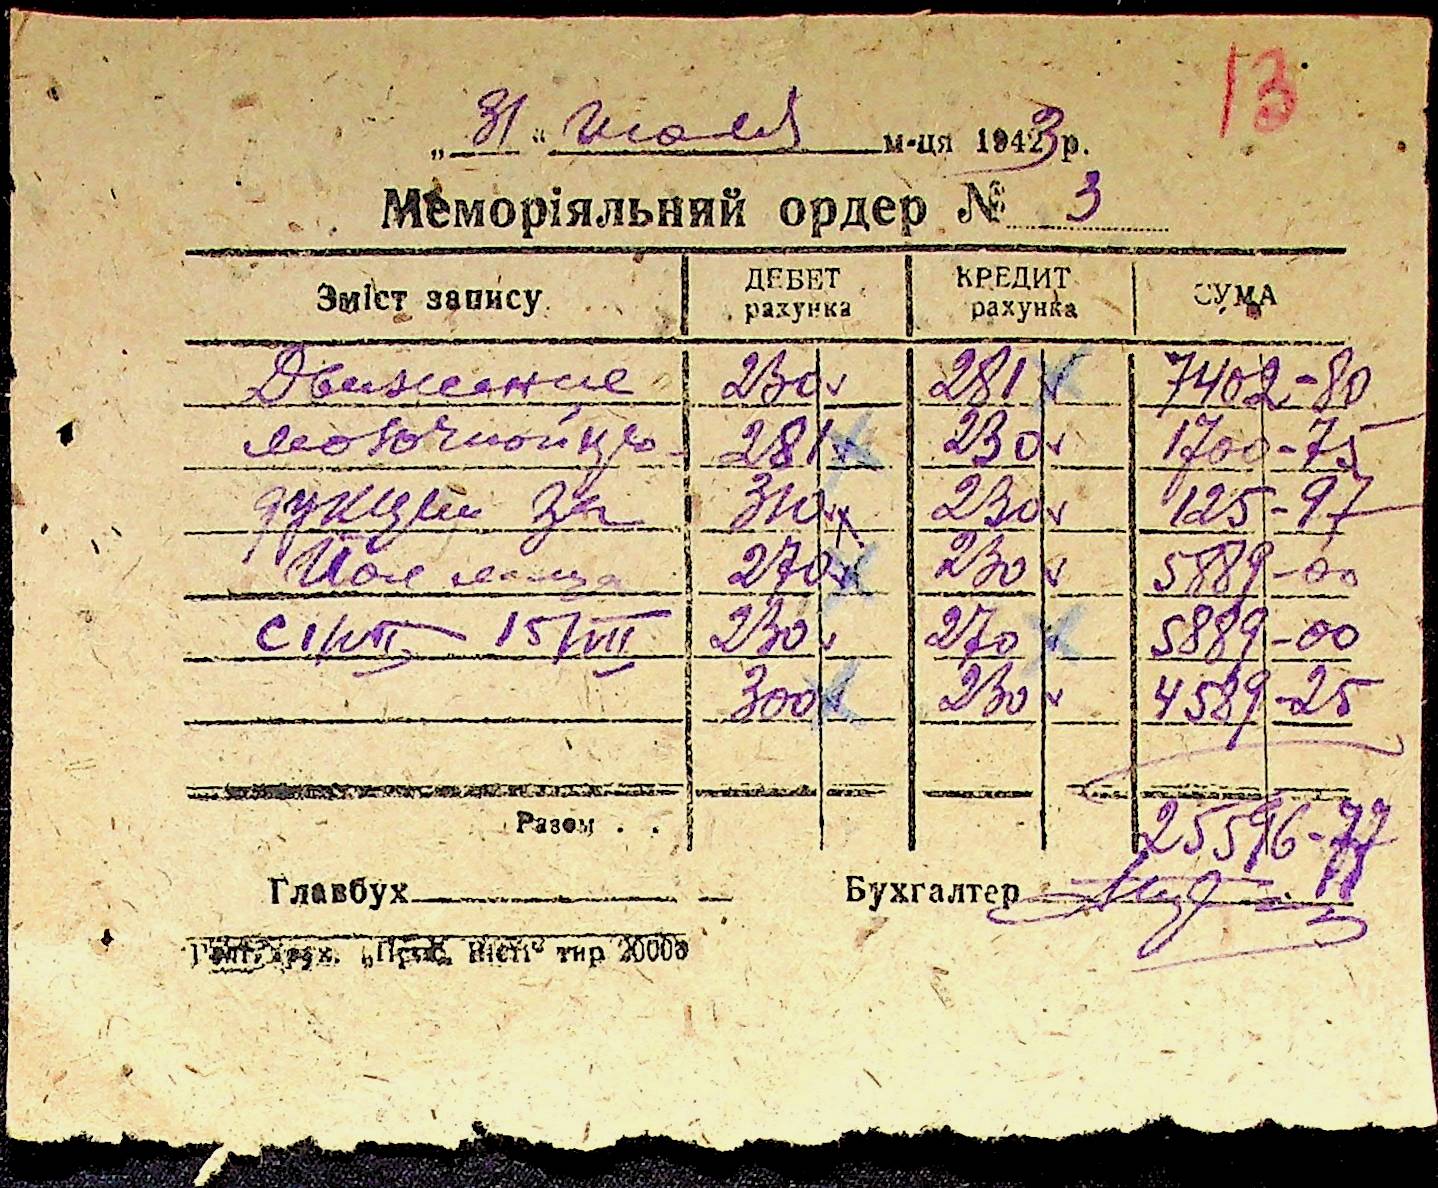 13
„31“ июля м-ця 1943 р.
Меморіяльний ордер № 3
Зміст запису ДЕБЕТ рахунка КРЕДИТ рахунка СУМА
Движение 230 281 7402-80
молочной про- 281 230 1700-75
дукции за 310 230 125-97
Июль м-ца 270 230 5889-00
с 1/VII 15/VII 230 270 5889-00
300 230 4589-25
Разом . . 25596-77
Главбух Бухгалтер
вісті“ тир 20000